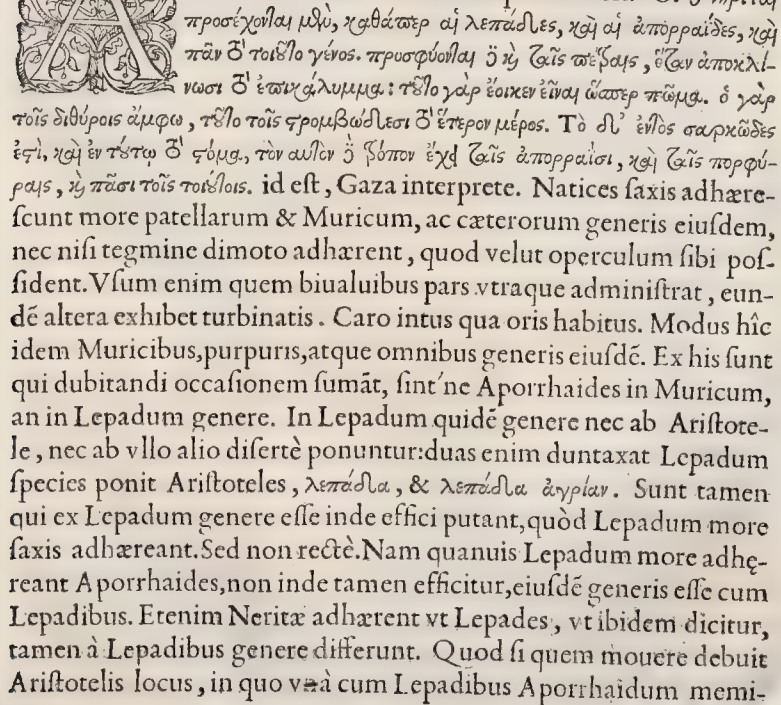 προσέχονται μὲν, καθάπερ αἱ λεπάδες, καὶ αἱ ἀπορραΐδες, καὶ
πᾶν τὸ τοιοῦτο γένος. προσφύονται δὲ καὶ ταῖς πέτραις, ὅταν ἀποκλί-
νωσι τὸ ἐπικάλυμμα: τοῦτο γὰρ ἔοικεν εἶναι ὥσπερ πῶμα. ὁ γὰρ
τοῖς διθύροις ἄμφω, τοῦτο τοῖς στρομβώδεσι τὸ ἕτερον μέρος. Τὸ δ' ἐντὸς σαρκῶδες
ἐστὶ, καὶ ἐν τούτῳ τὸ στόμα, τὸν αὐτὸν δὲ τρόπον ἔχει ταῖς ἀπορραΐσι, καὶ ταῖς πορφύ-
ραις, καὶ πᾶσι τοῖς τοιούτοις. id eſt, Gaza interprete. Natices ſaxis adhære-
ſcunt more patellarum & Muricum, ac cæterorum generis eiuſdem,
nec niſi tegmine dimoto adhærent, quod velut operculum ſibi poſ-
ſident. Vſum enim quem biualuibus pars vtraque adminiſtrat, eun-
dē altera exhibet turbinatis. Caro intus qua oris habitus. Modus hîc
idem Muricibus, purpuris, atque omnibus generis eiuſdē. Ex his ſunt
qui dubitandi occaſionem ſumāt, ſint'ne Aporrhaides in Muricum,
an in Lepadum genere. In Lepadum quidē genere nec ab Ariſtote-
le, nec ab vllo alio diſertè ponuntur: duas enim duntaxat Lepadum
ſpecies ponit Ariſtoteles, λεπάδα, & λεπάδα ἀγρίαν. Sunt tamen
qui ex Lepadum genere eſſe inde effici putant, quòd Lepadum more
ſaxis adhæreant. Sed non rectè. Nam quanuis Lepadum more adhę-
reant Aporrhaides, non inde tamen efficitur, eiuſdē generis eſſe cum
Lepadibus. Etenim Neritæ adhærent vt Lepades, vt ibidem dicitur,
tamen à Lepadibus genere differunt. Quod ſi quem mouere debuit
Ariſtotelis locus, in quo vnà cum Lepadibus Aporrhaidum memi-